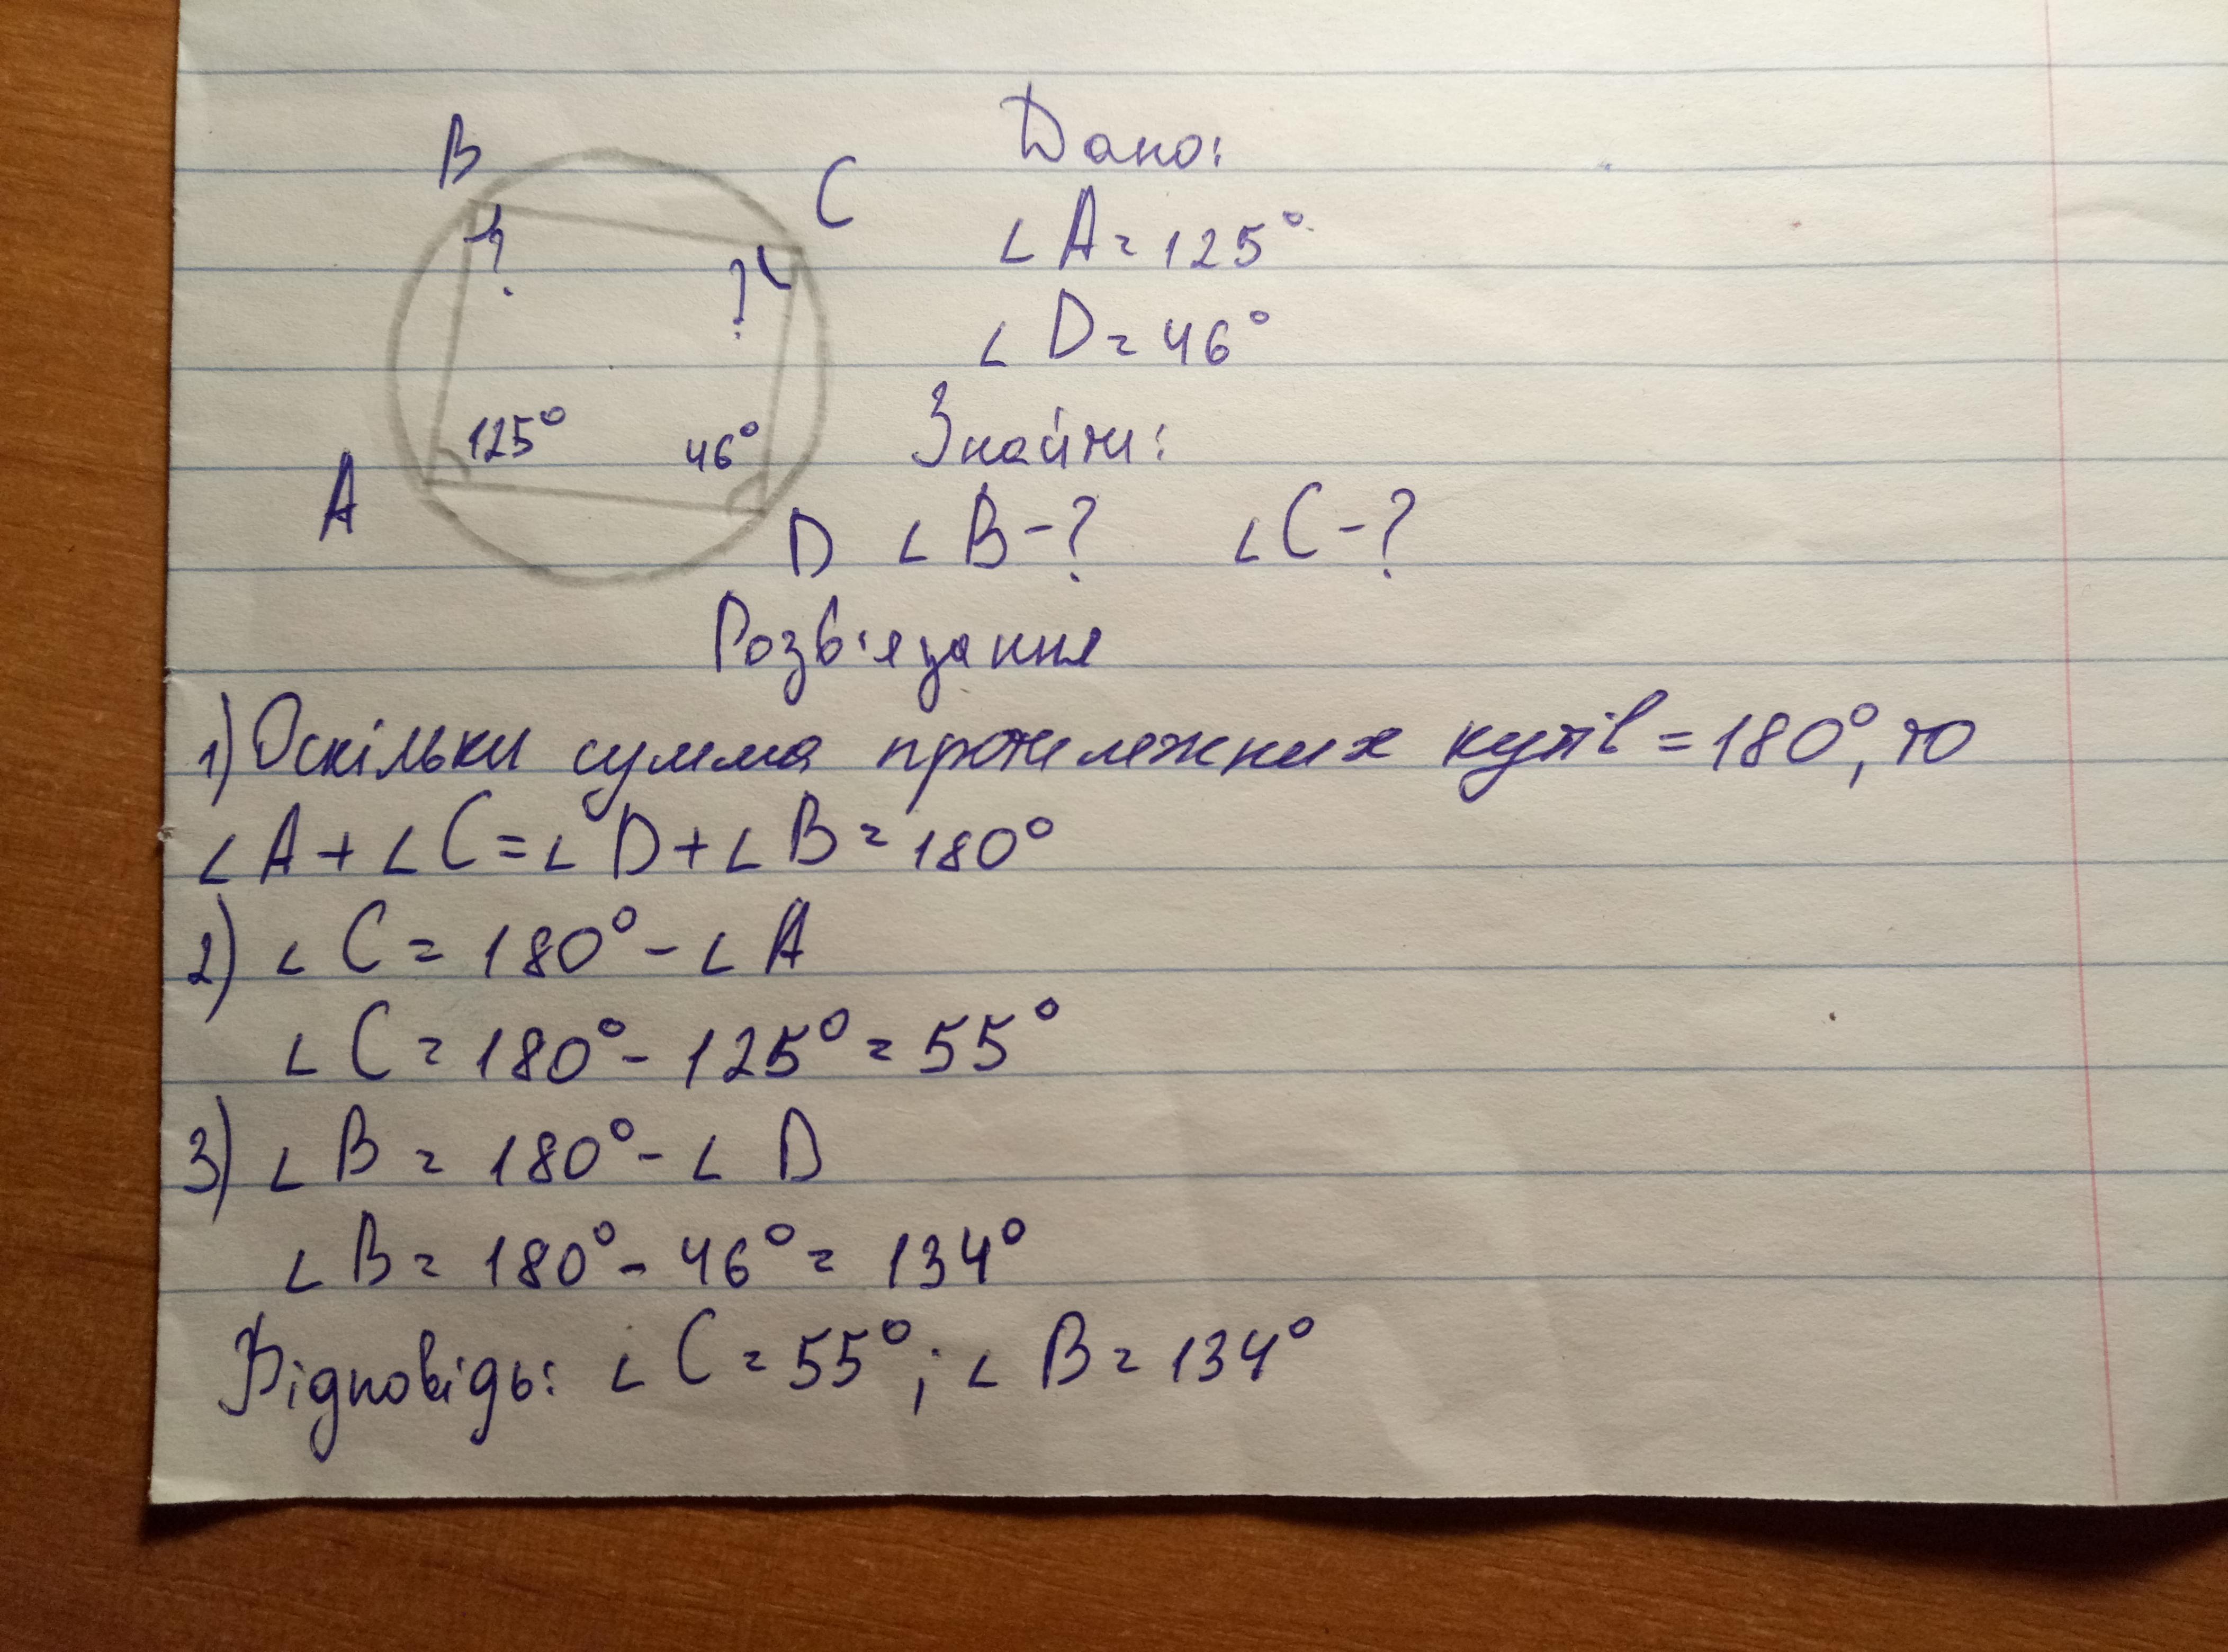 B
C
?
?
125°
46°
A
D
Дано:
∠A = 125°
∠D = 46°
Знайти:
∠B - ? ∠C - ?
Розв'язання
1) Оскільки сумма протилежних кутів = 180°, то
∠A + ∠C = ∠D + ∠B = 180°
2) ∠C = 180° - ∠A
∠C = 180° - 125° = 55°
3) ∠B = 180° - ∠D
∠B = 180° - 46° = 134°
Відповідь: ∠C = 55°; ∠B = 134°